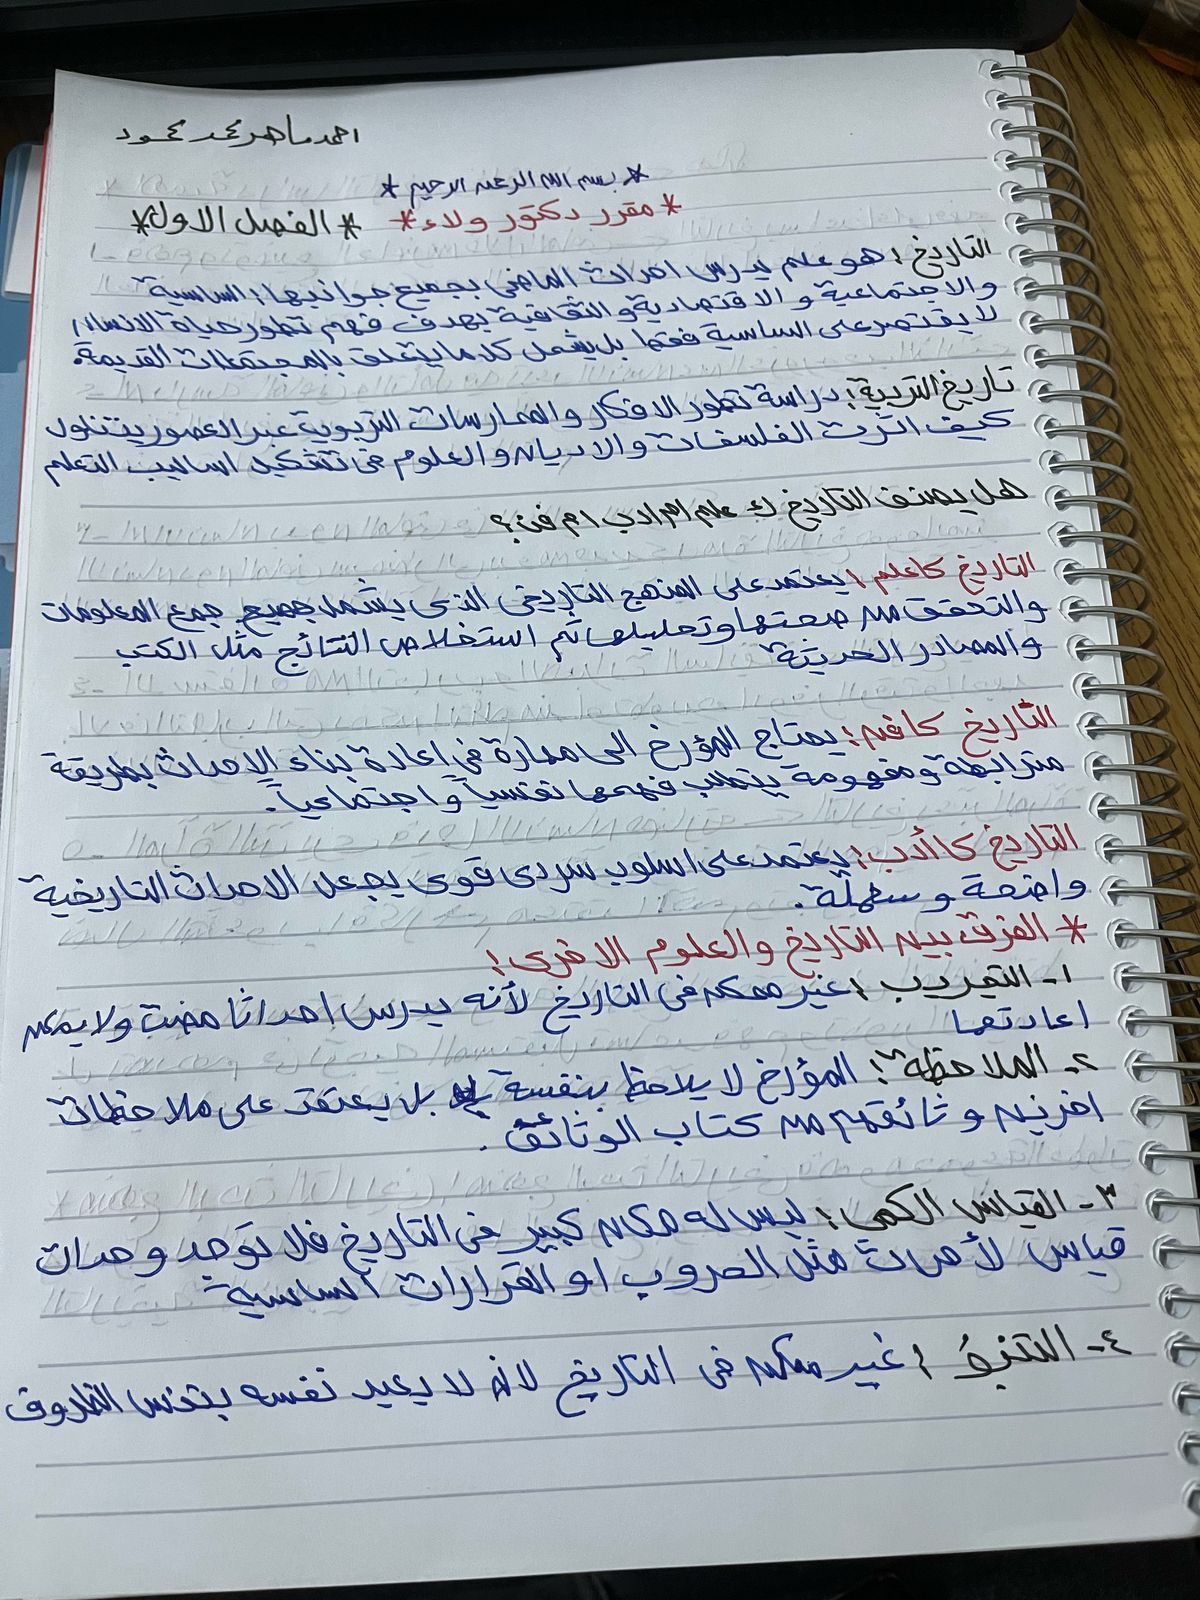 احمد ماهر محمد محمود
* بسم الله الرحمن الرحيم *
* مقرر دكتور ولاء * * الفصل الاول *
التاريخ : هو علم يدرس احداث الماضى بجميع جوانبها : الساسية
والاجتماعية والاقتصادية والثقافية بهدف فهم تطور حياة الانسان
لا يقتصر على الساسية فقط بل يشمل كل ما يتعلق بالمجتمعات القديمة.
تاريخ التربية : دراسة تطور الافكار والممارسات التربوية عبر العصور يتناول
كيف اثرت الفلسفات والاديان والعلوم فى تشكيل اساليب التعلم
هل يصنف التاريخ ك علم ام ادب ام فن ؟
التاريخ كاعلم : يعتمد على المنهج التاريخى الذى يشمل جميع جمع المعلومات
والتحقق من صحتها وتحليلها ثم استخلاص النتائج مثل الكتب
والمصادر الحديثة
التاريخ كافن : يحتاج المؤرخ الى مهارة فى اعادة بناء الاحداث بطريقة
مترابطة ومفهومة يتطلب فهمها نفسياً واجتماعياً .
التاريخ كاأدب : يعتمد على اسلوب سردى قوى يجعل الاحداث التاريخية
واضحة وسهلة .
* الفرق بين التاريخ والعلوم الاخرى :
١- التجريب : غير ممكن فى التاريخ لأنه يدرس احداثا مضت ولا يمكن
اعادتها
٢- الملاحظة : المؤرخ لا يلاحظ بنفسة بل يعتقد على ملاحظات
اخرين وثائقهم من كتاب الوثائق .
٣- القياس الكمى : ليس له مكان كبير فى التاريخ فلا توجد وحدات
قياس لأحداث مثل الحروب او القرارات الساسية
٤- التنبؤ : غير ممكن فى التاريخ لانه لا يعيد نفسه بنفس الظروف